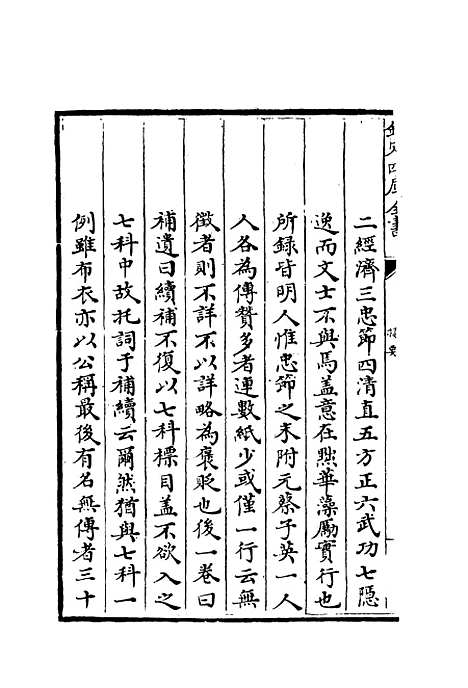 欽定四庫全書
提要
二經濟三忠節四清直五方正六武功七隱
逸而文士不與焉蓋意在黜華藻勵實行也
所録皆明人惟忠節之末附元蔡子英一人
人各為傳贊多者連數紙少或僅一行云無
徴者則不詳不以詳略為褒貶也後一卷曰
補遺曰續補不復以七科標目蓋不欲入之
七科中故托詞于補續云爾然猶與七科一
例雖布衣亦以公稱最後有名無傳者三十